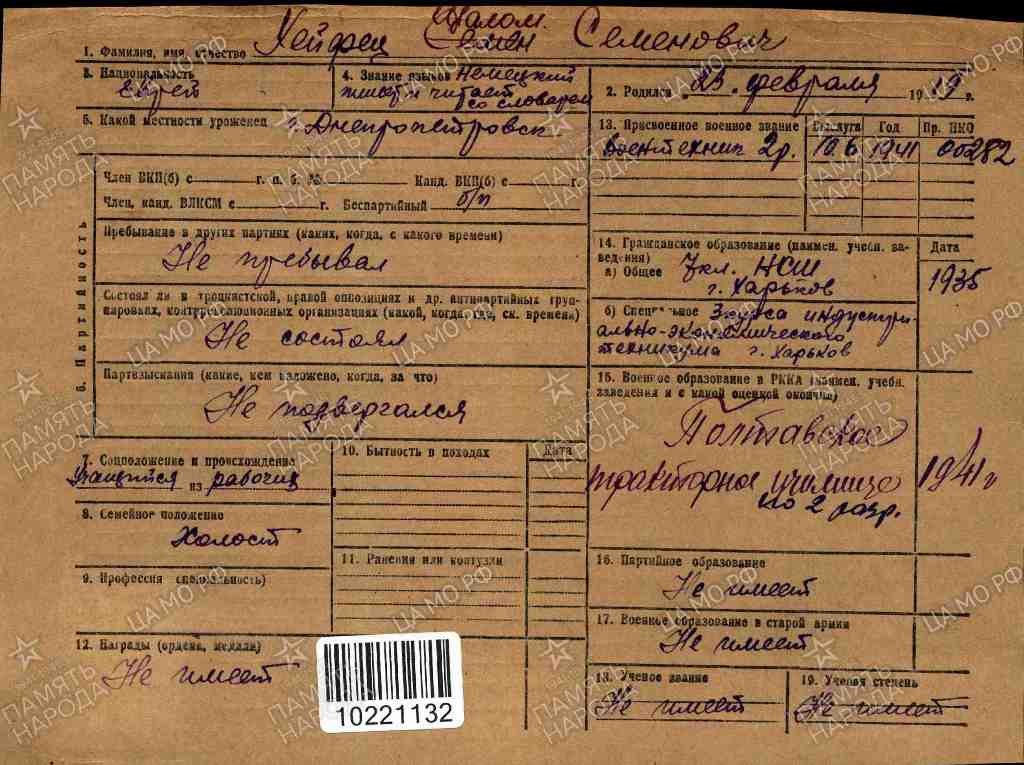 Шалом.
1. Фамилия, имя, отчество Хейфец Семен Семенович
3. Национальность еврей
4. Знание языков Немецкий
пишет и читает
со словарем
2. Родился 23. февраля 1919 г.
5. Какой местности уроженец г. Днепропетровск
13. Присвоенное военное звание Выслуга Год Пр. НКО
Воентехник 2 р. 10.6 1941 00282
6. Партийность
Член ВКП(б) с г. п. б. № Канд. ВКП(б) с г.
Член, канд. ВЛКСМ с г. Беспартийный б/п
Пребывание в других партиях (каких, когда, с какого времени)
Не пребывал
Состоял ли в троцкистской, правой оппозициях и др. антипартийных груп-
пировках, контрреволюционных организациях (какой, когда, где, ск. времени)
Не состоял
Партвзыскания (какие, кем наложено, когда, за что)
Не подвергался
14. Гражданское образование (наимен. учебн. за-
ведения) Дата
а) Общее 7 кл. НСШ
г. Харьков 1935
б) Специальное 3 курса индустри-
ально-экономического
техникума г. Харьков
15. Военное образование в РККА (наимен. учебн.
заведения и с какой оценкой окончил)
Полтавское
тракторное училище 1941 г
по 2 разр.
7. Соцположение и происхождение
Учащийся из рабочих
8. Семейное положение
Холост
9. Профессия (специальность)
10. Бытность в походах Дата
11. Ранения или контузии
12. Награды (ордена, медали)
Не имеет
16. Партийное образование
Не имеет
17. Военное образование в старой армии
Не имеет
18. Ученое звание
Не имеет
19. Ученая степень
Не имеет
10221132
ПАМЯТЬ НАРОДА
ЦА МО РФ